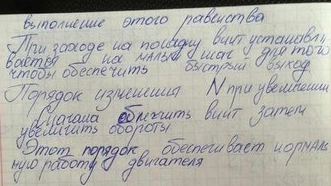 выполнение этого равенства
При заходе на посадку винт установли
вается на малый шаг для того
чтобы обеспечить быстрый выход
Порядок изменения N при увеличении
Сначала облегчить винт затем
увеличить обороты
Этот порядок обеспечивает нормаль
ную работу двигателя